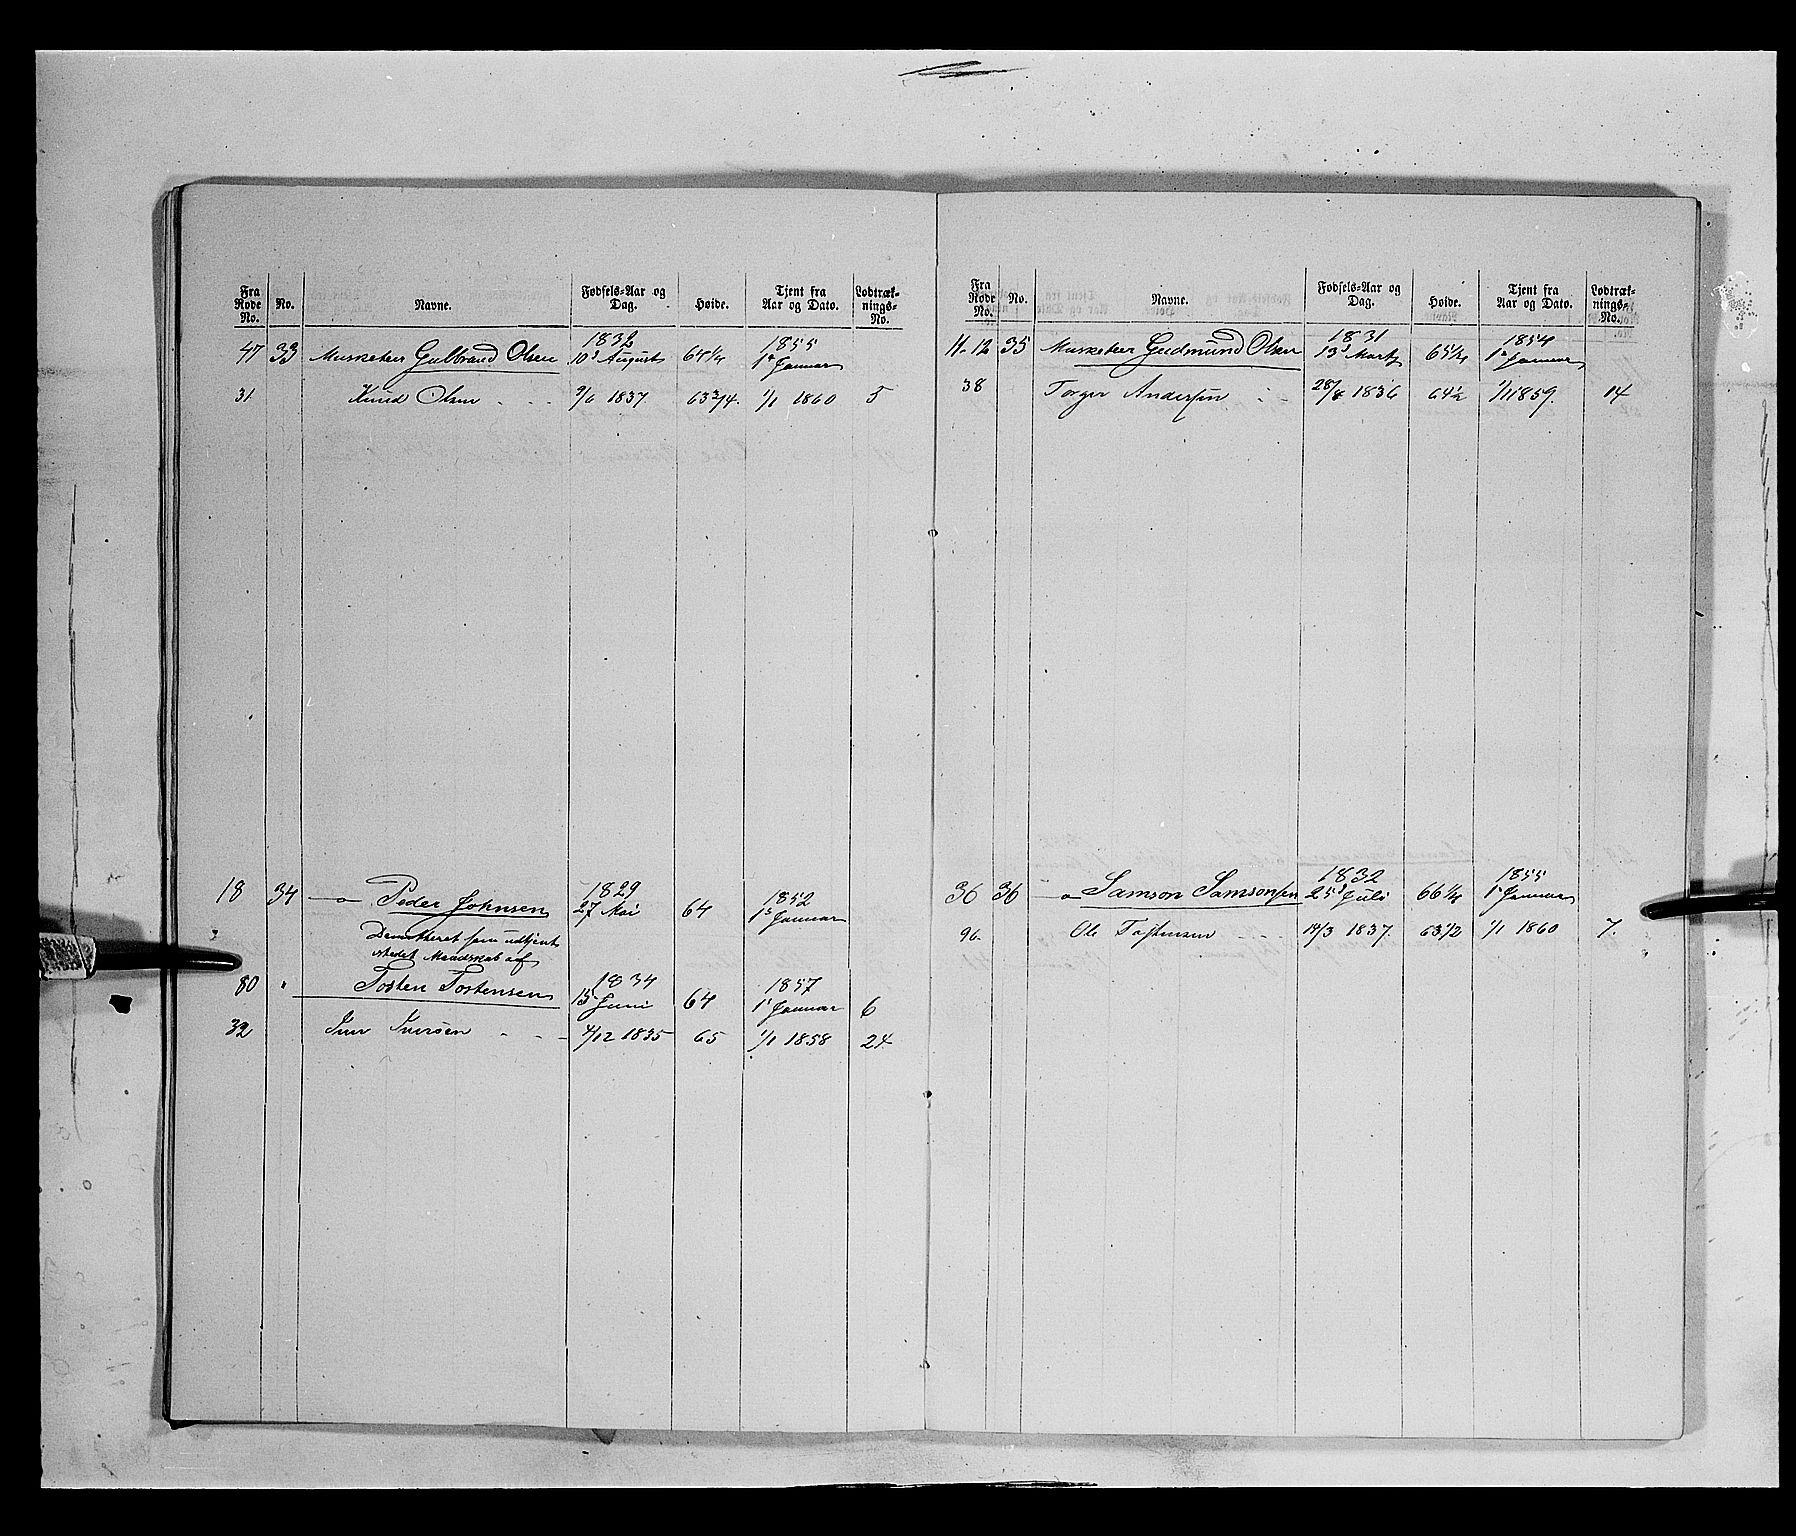 Fra Rode No. No. Navne. Fødsels-Aar og Dag. Høide. Tjent fra Aar og Dato. Lodtræk-nings-No.
1832 1855
47 33 Musketeer Gulbrand Olsen 10d August 64 1/4 1e Januar
31 Knud Olsen - - - 9/6 1837. 63 3/4. 1/1 1860 5
1829 1852
18 34 —o— Peder Johnsen 27 Mai 64 1s Januar
Demitteret som udtjent
istedet Mandskab af
1834 1857
80 " Tosten Tostensen 15 Juni 64 1s Januar 6
32 Iver Iversen - - - 4/12 1835 65 1/1 1858 24
Fra Rode No. No. Navne. Fødsels-Aar og Dag. Høide. Tjent fra Aar og Dato. Lodtræk-nings-No.
1831 1854
11-12 35 Musketeer Gudmund Olsen 13d Marts 65 1/4 1s Januar
38 Torger Andersen - - 28/8 1836 64 1/2 1/1 1859. 14
1832 1855
36 36 —o— Samson Samsonsen 25d Juli 66 1/4 1s Januar
96. Ole Tostensen - - - 19/3 1837. 63 1/2 1/1 1860 7.